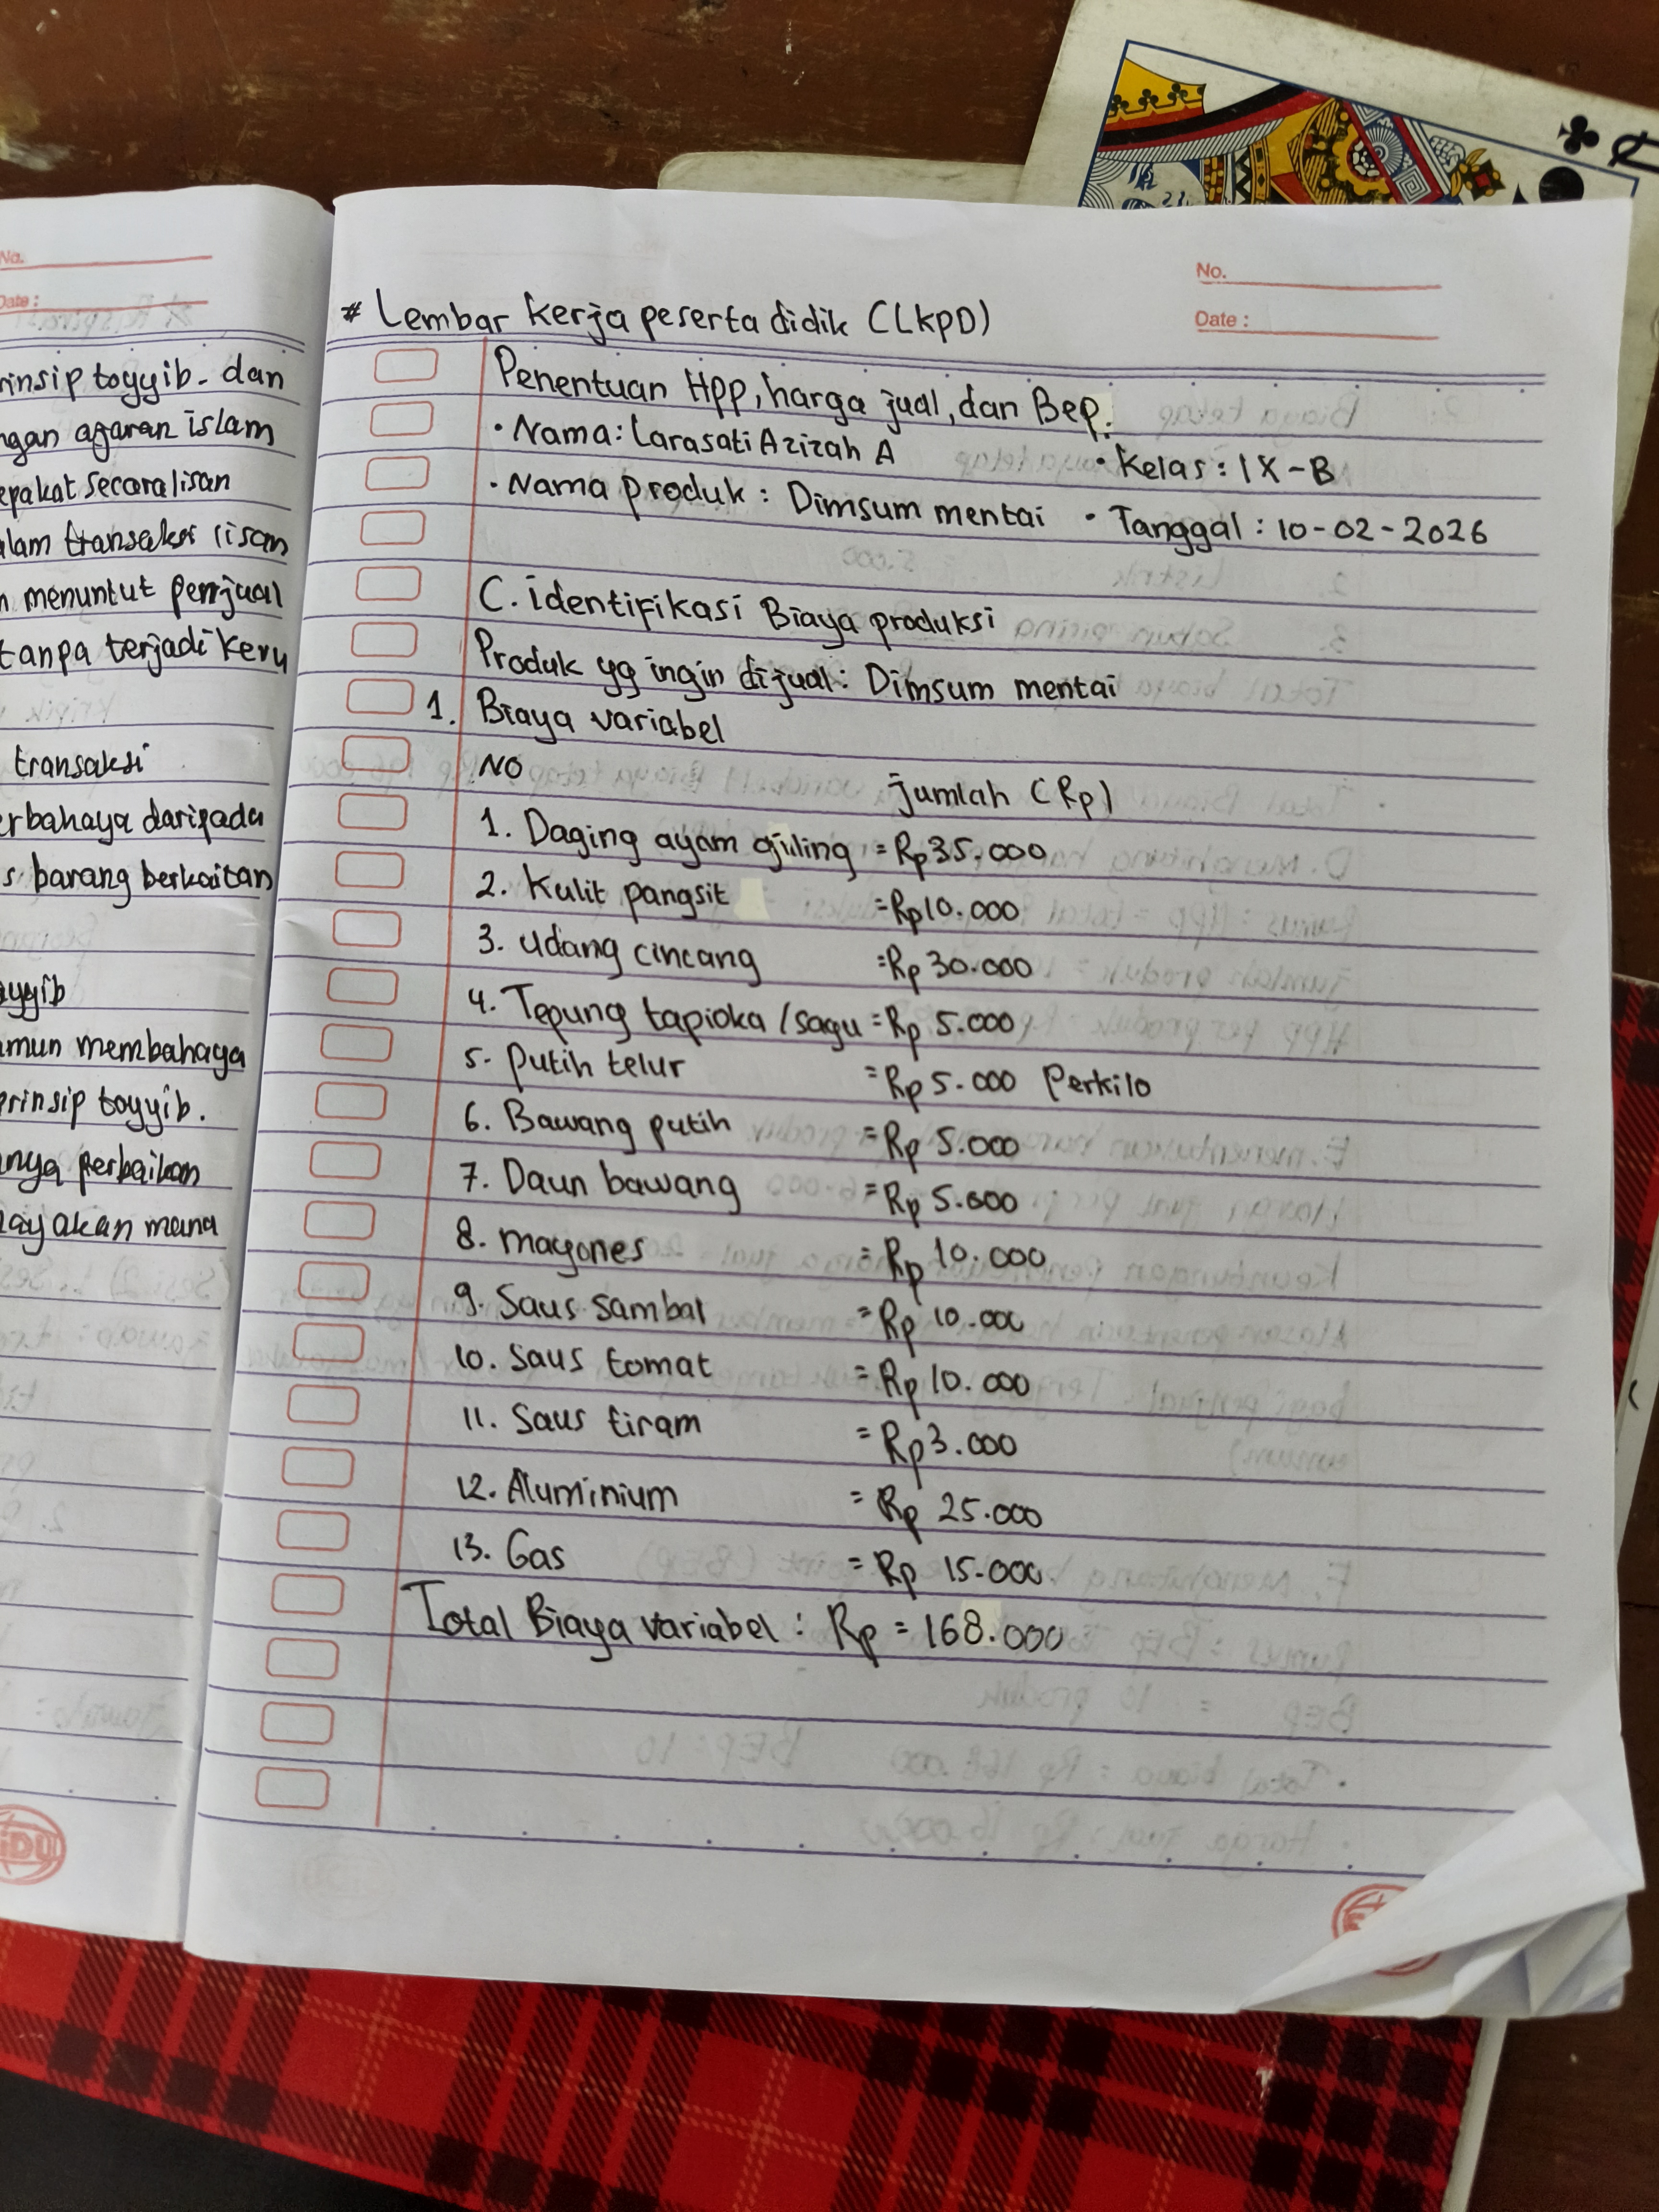 No.
Date :
rinsip toyyib- dan
ngan ajaran islam
epakat secara lisan
alam transaksi lisan
n menuntut penjual
tanpa terjadi keru
transaksi
erbahaya daripada
s barang berkaitan
ayyib
amun membahaya
prinsip toyyib.
anya perbaikan
nayakan mana
No.
Date :
# Lembar kerja peserta didik (LKPD)
Penentuan Hpp, harga jual, dan Bep.
• Nama: Larasati Azizah A • Kelas : IX - B
• Nama produk : Dimsum mentai • Tanggal : 10-02-2026
C. identifikasi Biaya produksi
Produk yg ingin dijual : Dimsum mentai
1. Biaya variabel
NO jumlah (Rp)
1. Daging ayam giling = Rp 35.000
2. Kulit pangsit = Rp 10.000
3. Udang cincang = Rp 30.000
4. Tepung tapioka / sagu = Rp 5.000
5. putih telur = Rp 5.000 Perkilo
6. Bawang putih = Rp 5.000
7. Daun bawang = Rp 5.000
8. mayones = Rp 10.000
9. Saus sambal = Rp 10.000
10. Saus tomat = Rp 10.000
11. Saus tiram = Rp 3.000
12. Aluminium = Rp 25.000
13. Gas = Rp 15.000
Total Biaya variabel : Rp = 168.000